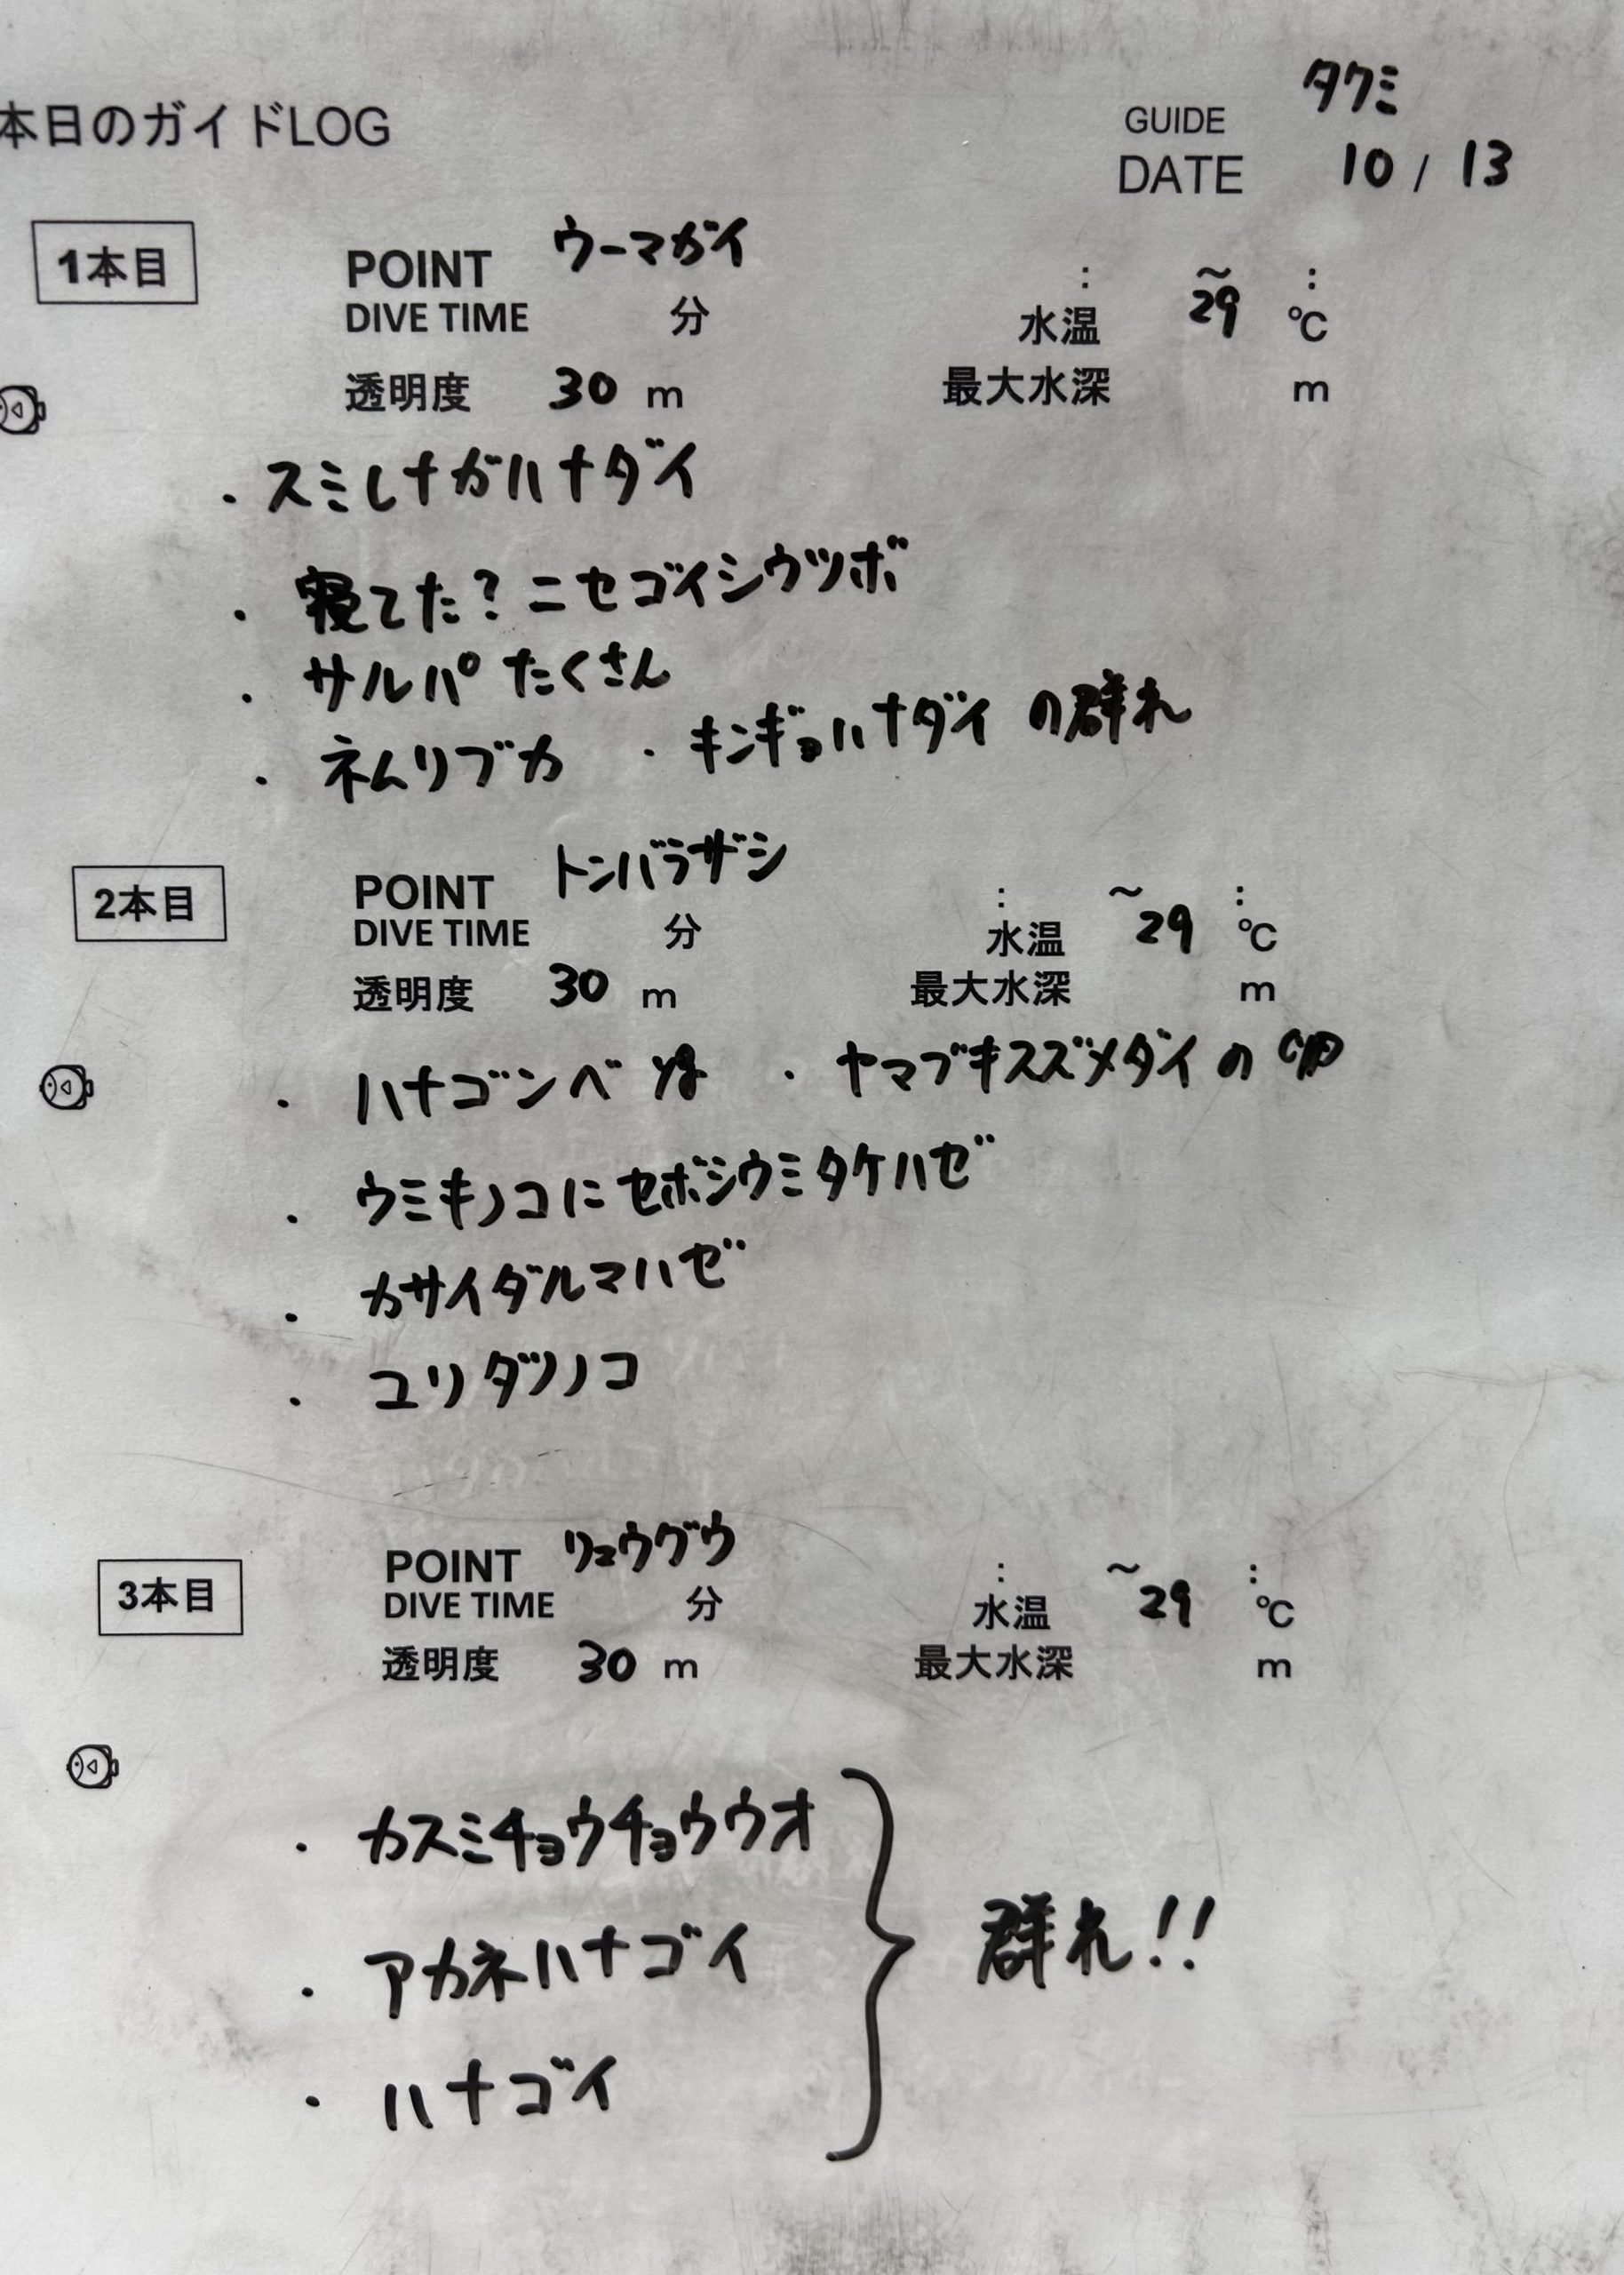 タクミ
本日のガイドLOG
GUIDE
DATE 10 / 13
1本目
POINT ウーマガイ : ～ :
DIVE TIME 分 水温 29 ℃
透明度 30 m 最大水深 m
・スミレナガハナダイ
・寝てた?ニセゴイシウツボ
・サルパたくさん
・ネムリブカ ・キンギョハナダイの群れ
2本目
POINT トンバラザシ : ～ :
DIVE TIME 分 水温 29 ℃
透明度 30 m 最大水深 m
・ハナゴンベ ・ヤマブキスズメダイの卵
・ウミキノコにセボシウミタケハゼ
・カサイダルマハゼ
・ユリタツノコ
3本目
POINT リュウグウ : ～ :
DIVE TIME 分 水温 29 ℃
透明度 30 m 最大水深 m
・カスミチョウチョウウオ
・アカネハナゴイ 群れ!!
・ハナゴイ